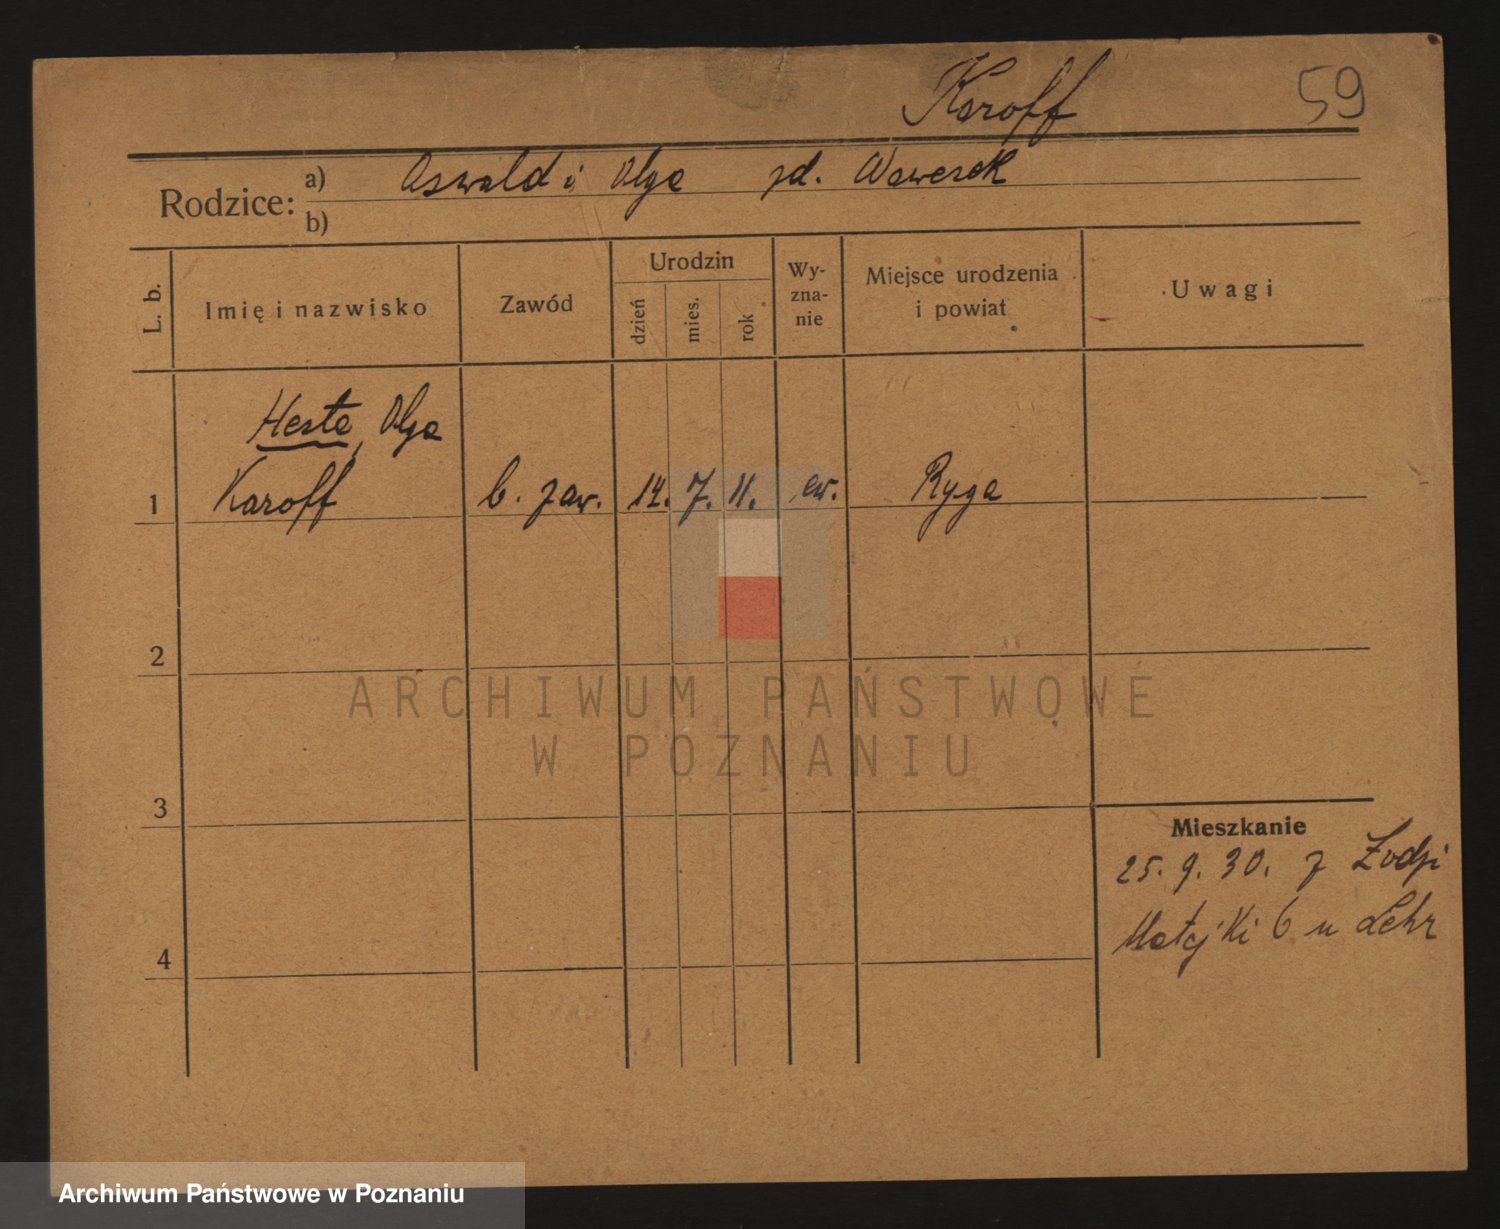 Karoff
59
Rodzice:
a) Oswald i Olga zd. Wawerek
b)
L. b.
Imię i nazwisko
Zawód
Urodzin
dzień
mies.
rok
Wy-
zna-
nie
Miejsce urodzenia
i powiat
Uwagi
Herta, Olga
1 Karoff b. zaw. 14. 7. 11. ew. Ryga
2
3
4
Mieszkanie
25. 9. 30. z Łodzi
Matejki 6 u Lehr
ARCHIWUM PAŃSTWOWE
W POZNANIU
Archiwum Państwowe w Poznaniu